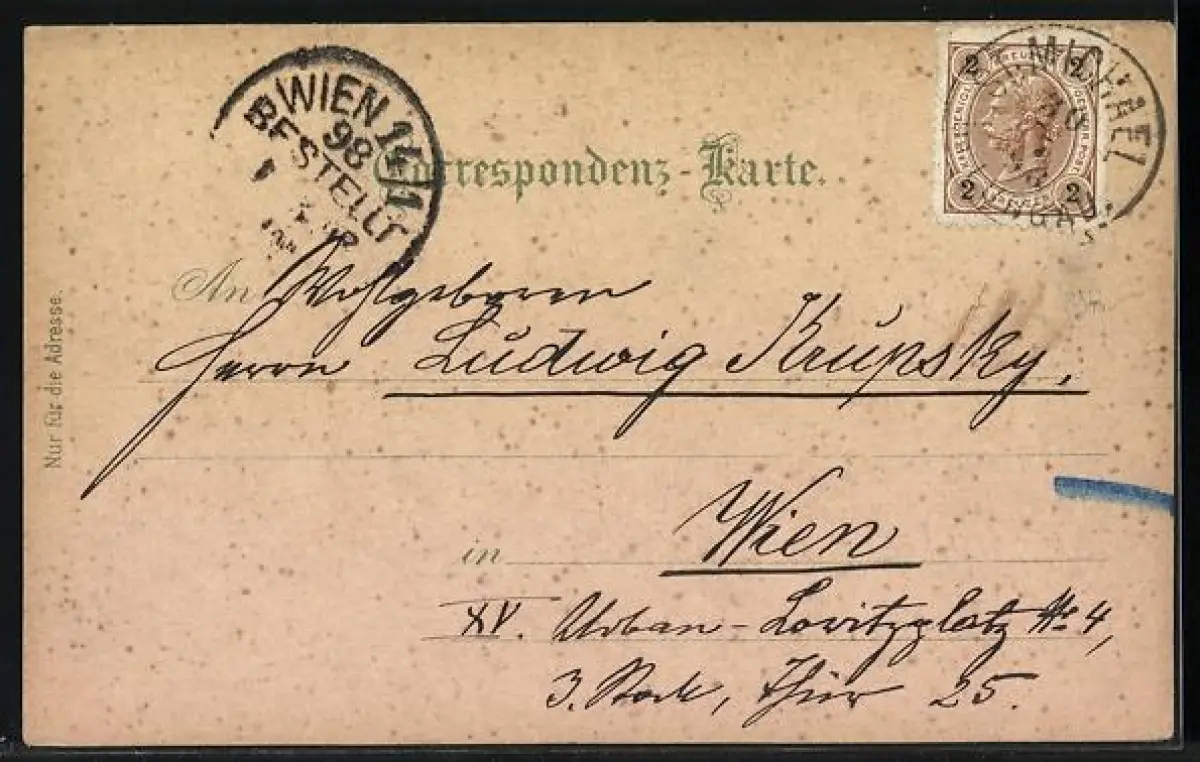 WIEN 14/1
98
BESTELLT
Correspondenz-Karte.
MICHAEL
2 2
2 2
Nur für die Adresse.
An Wohlgeboren
Herrn Ludwig Krupsky,
in Wien
XV. Urban-Loritzplatz No 4,
3. Stock, Thür 25.